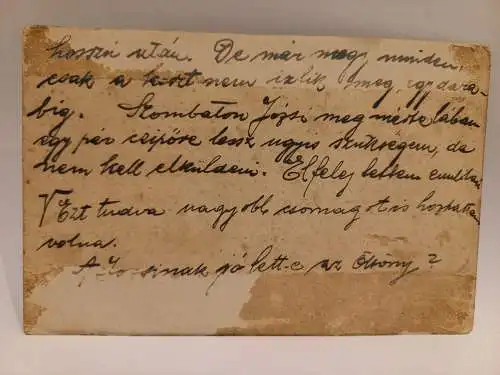 hosszú után. De már meg minden,
csak a leszt nem izlik meg, egy dara-
big. Szombaton Józsi meg mérte lában
egy pár czipőre lesz ugyis szükségem, da
nem kell elküldeni. Elfelej tettem említeni
Ezt tudva nagyobb csomagot is hozhattam
volna.
A nak jó lett-e az öltöny?